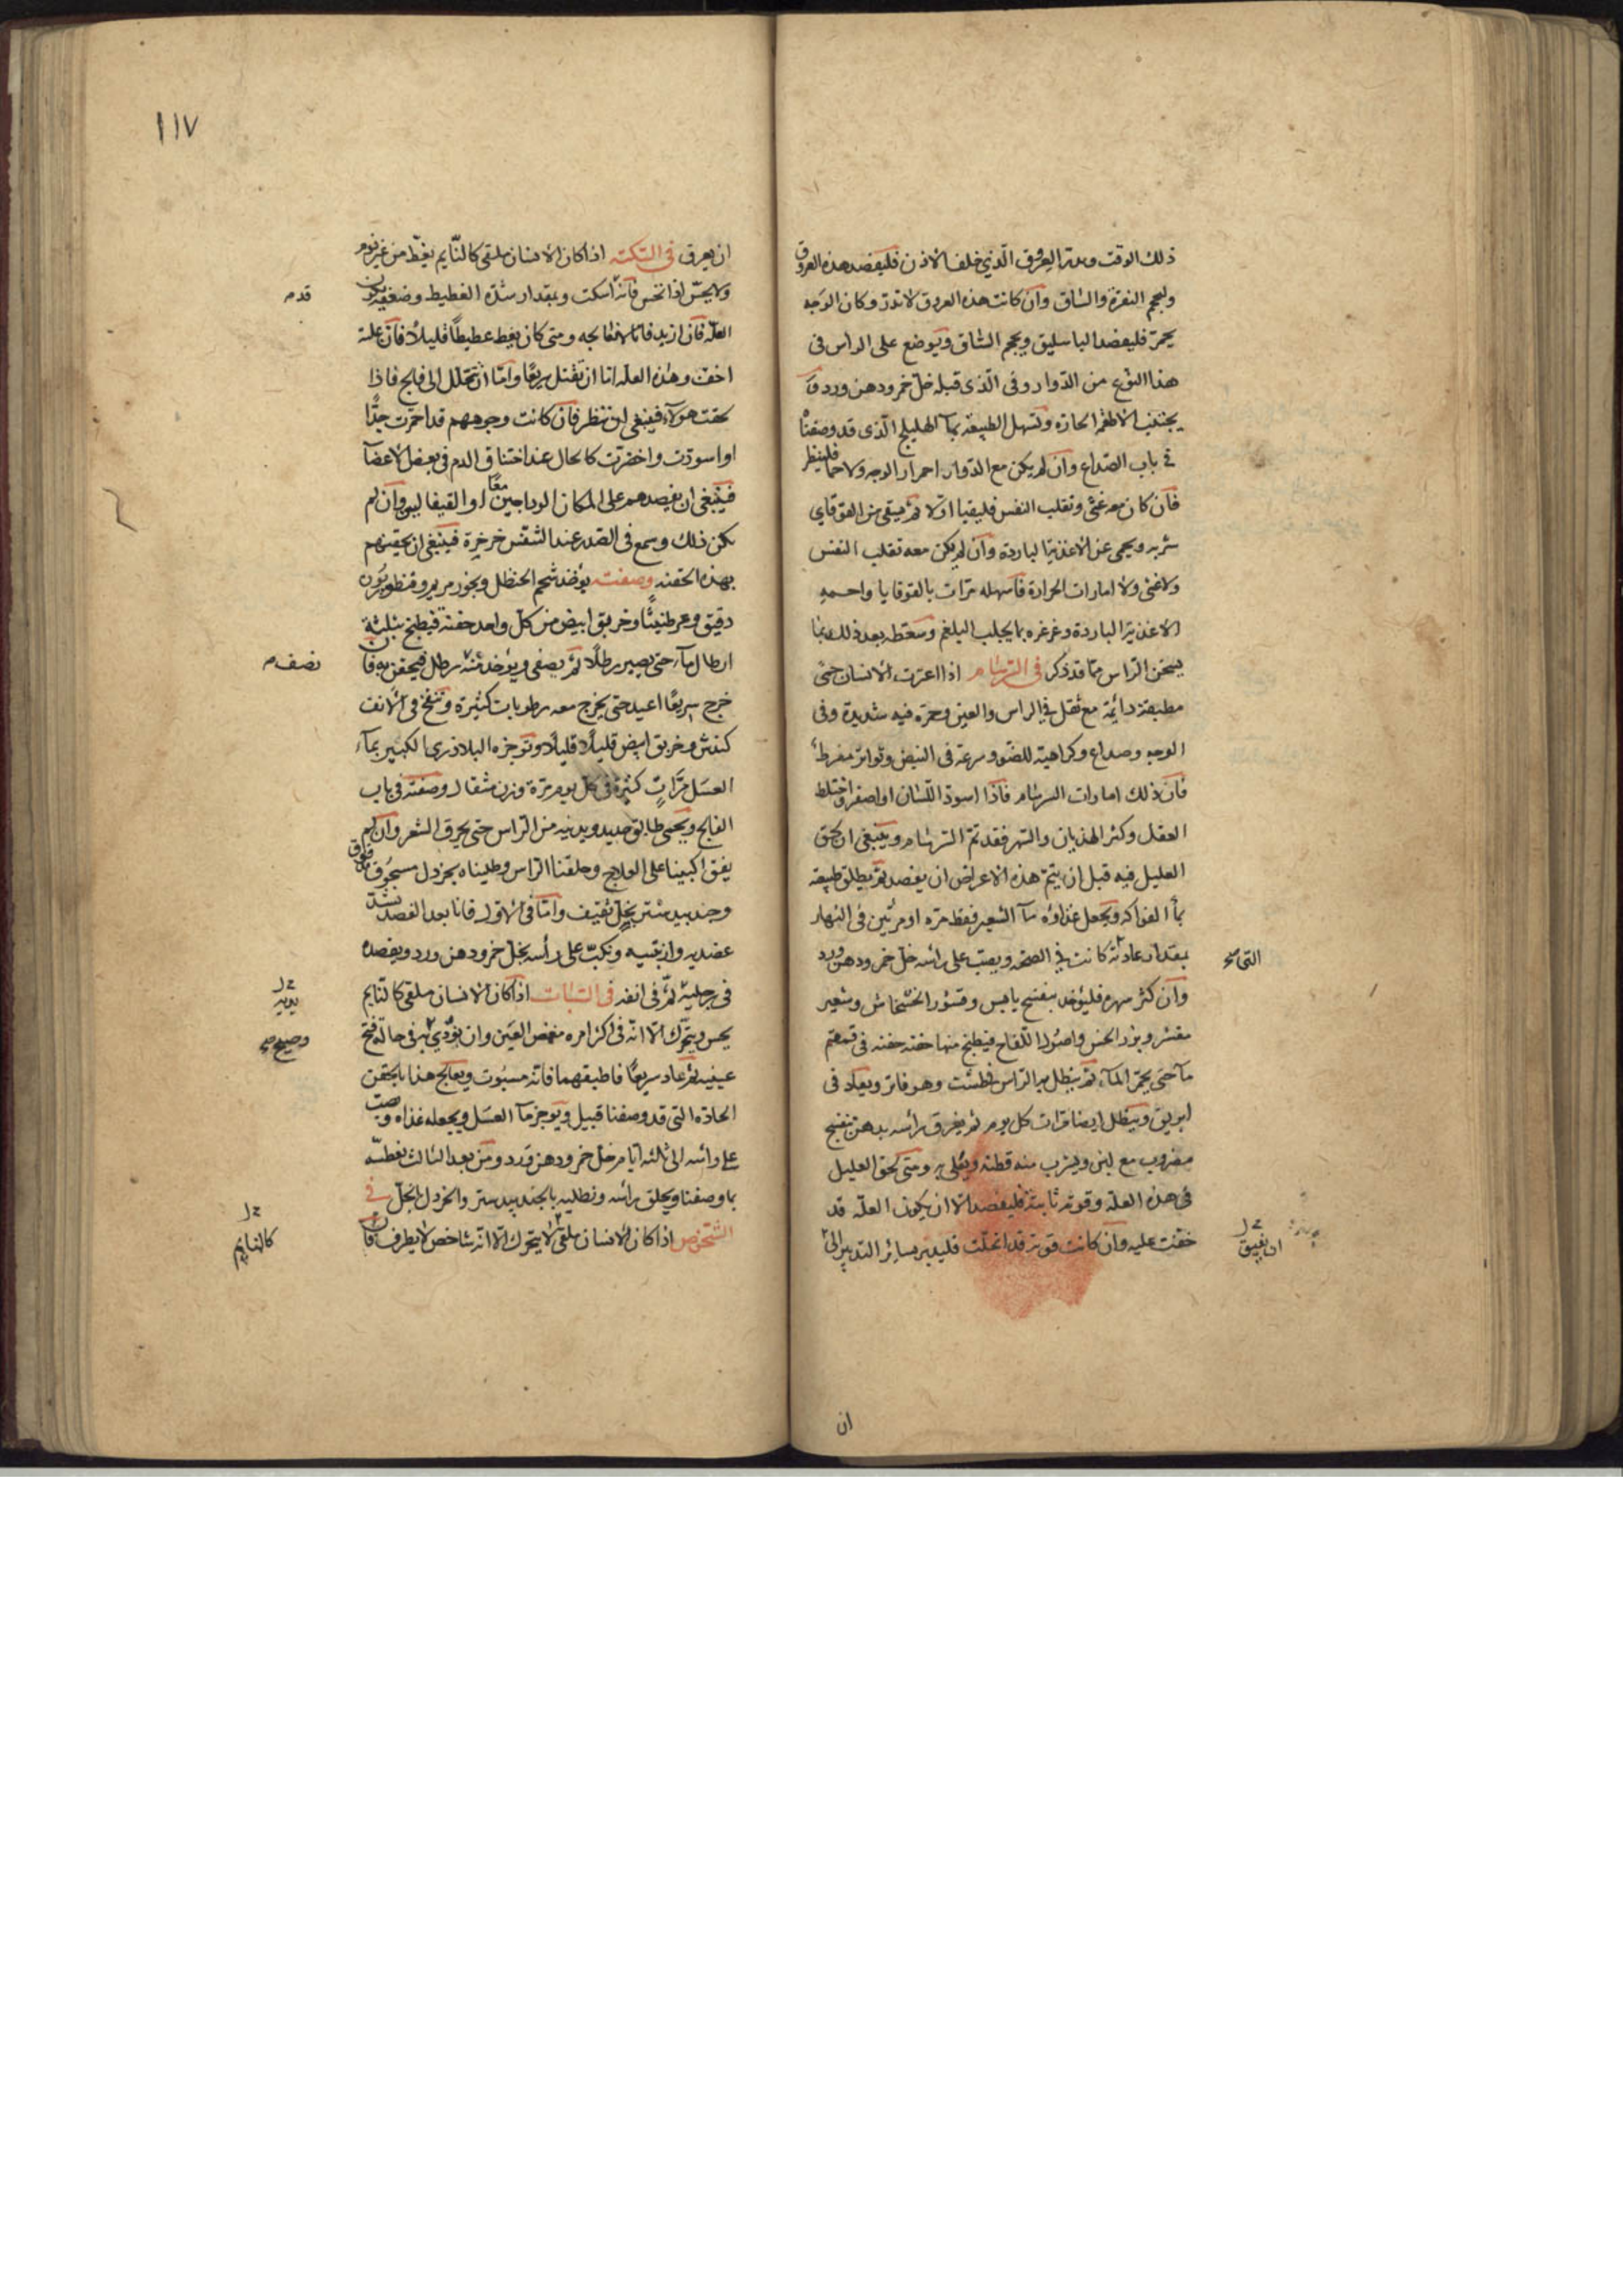 ذلك الوقت وبدر العرق الذي خلف الاذن فليفصد هذه العروق
وليحجم النقرة والساق وان كانت هذه العروق لا تدر وكان الوجه
يحمر فليفصد الباسليق ويحجم الساق ويوضع على الراس في
هذا النوع من الدوار وفي الذي قبله خل خمر ودهن ورد و
يجتنب الاطعمة الحارة وتسهل الطبيعة بماء الهليلج الذي قد وصفنا
في باب الصداع وان لم يكن مع الدوار احمرار الوجه ولا حما فلينظر
فان كان معه غثي وتقلب النفس فليقيا اولا ثم يسقى من القوقاي
شربه ويحمى عن الاغذية الباردة وان لم يكن معه تقلب النفس
ولا غثي ولا امارات الحرارة فاسهله مرات بالقوقايا واحمه
الاغذية الباردة وغرغره بما يجلب البلغم وسعطه بعد ذلك بما
يسخن الراس مما قد ذكر في السرسام اذا اعترت الانسان حمى
مطبقة دائمة مع ثقل في الراس والعين وحمرة فيه شديدة وفي
الوجه وصداع وكراهية للضوء وسرعة في النبض وتواتر مفرط
فان ذلك امارات السرسام فاذا اسود اللسان او اصفر واختلط
العقل وكثر الهذيان والسهر فقد تم السرسام وينبغي ان يلحق
العليل فيه قبل ان يتم هذه الاعراض ان يفصد ثم يطلق طبيعته
بماء الفواكه ويجعل غذاؤه ماء الشعير فقط مرة او مرتين في النهار
بمقدار عادته كانت في الصحة ويصب على راسه خل خمر ودهن ورد
التي
وان كثر سهره فليؤخذ بنفسج يابس وقشور الخشخاش وشعير
مقشر وبزر الخس واصول اللفاح فيطبخ منها حفنة حفنة في قمقم
ماء حتى يحمر الماء ثم ينطل به الراس بطشت وهو فاتر ويعاد في
ابريق وينطل ايضا مرات كل يوم ثم يغرق راسه بدهن بنفسج
مضروب مع لبن ويشرب منه قطنة ويعلى به ومتى لحق العليل
في هذه العلة وقوته ثابتة فليفصد الا ان يكون العلة قد
خفت عليه وان كانت قوته قد انحلت فليدبر بسائر التدبير الى
ان يفيق
ان
١١٧
ان يعرق في السكتة اذا كان الانسان ملقى كالنايم يغط من غير نوم
ولا يحس اذا نخس فانه اسكت وبمقدار شدة الغطيط وضعفه يكون
قدم
العلة فان ازبد فانا لا نعالجه ومتى كان يغط غطيطا قليلا فان علته
اخف وهذه العلة اما ان تقتل سريعا واما ان تنحل الى فالج فاذا
لحقت هولاء فينبغي ان ننظر فان كانت وجوههم قد احمرت جدا
او اسودت واخضرت كالحال عند اختناق الدم في بعض الاعضاء
فينبغي ان يفصدهم على المكان الوداجين معا او القيفالين وان لم
يكن ذلك وسمع في الصدر عند التنفس خرخرة فينبغي ان يحقنهم
بهذه الحقنة وصفته يؤخذ شحم الحنظل وبخور مريم وقنطوريون
دقيق وعرطنيثا وخربق ابيض من كل واحد حفنة فيطبخ بثلثة
ارطال ماء حتى يصير رطلا ثم يصفى ويؤخذ منه رطل فيحقن به فان
نصف
خرج سريعا اعيد حتى يخرج معه رطوبات كثيرة وتنفخ في الانف
كندش وخربق ابيض قليلا قليلا وتوجره البلاذري الكبير بماء
العسل مرات كثيرة في كل يوم مرة وزن مثقال وصفته في باب
الفالج ويحمى طابق حديد ويدنيه من الراس حتى يحرق الشعر وان لم
يفق اكببنا على العلاج وحلقنا الراس وطليناه بخردل مسحوق
وجندبيدستر بخل ثقيف واما في الاول فانا بعد الفصد نشد
عضديه وارنبتيه ونكب على رأسه بخل خمر ودهن ورد ويفصده
في رجليه ثم في انفه في السبات اذا كان الانسان ملقى كالنايم
يديه
يحس ويتحرك الا انه في اكثر امره مغمض العين وان نودي به في حالة فتح
وصيح
عينيه ثم عاد سريعا فاطبقهما فانه مسبوت ويعالج هذا بالحقن
الحادة التي قد وصفنا قبيل ويوجر ماء العسل ويجعله غذاه ويصب
على رأسه الى ثلثة ايام خل خمر ودهن ورد ومن بعد الثالث نعطسه
بما وصفنا ويحلق رأسه ونطليه بالجندبيدستر والخردل بالخل في
الشخوص اذا كان الانسان ملقى لا يتحرك الا انه شاخص لا يطرف فان
كالنايم